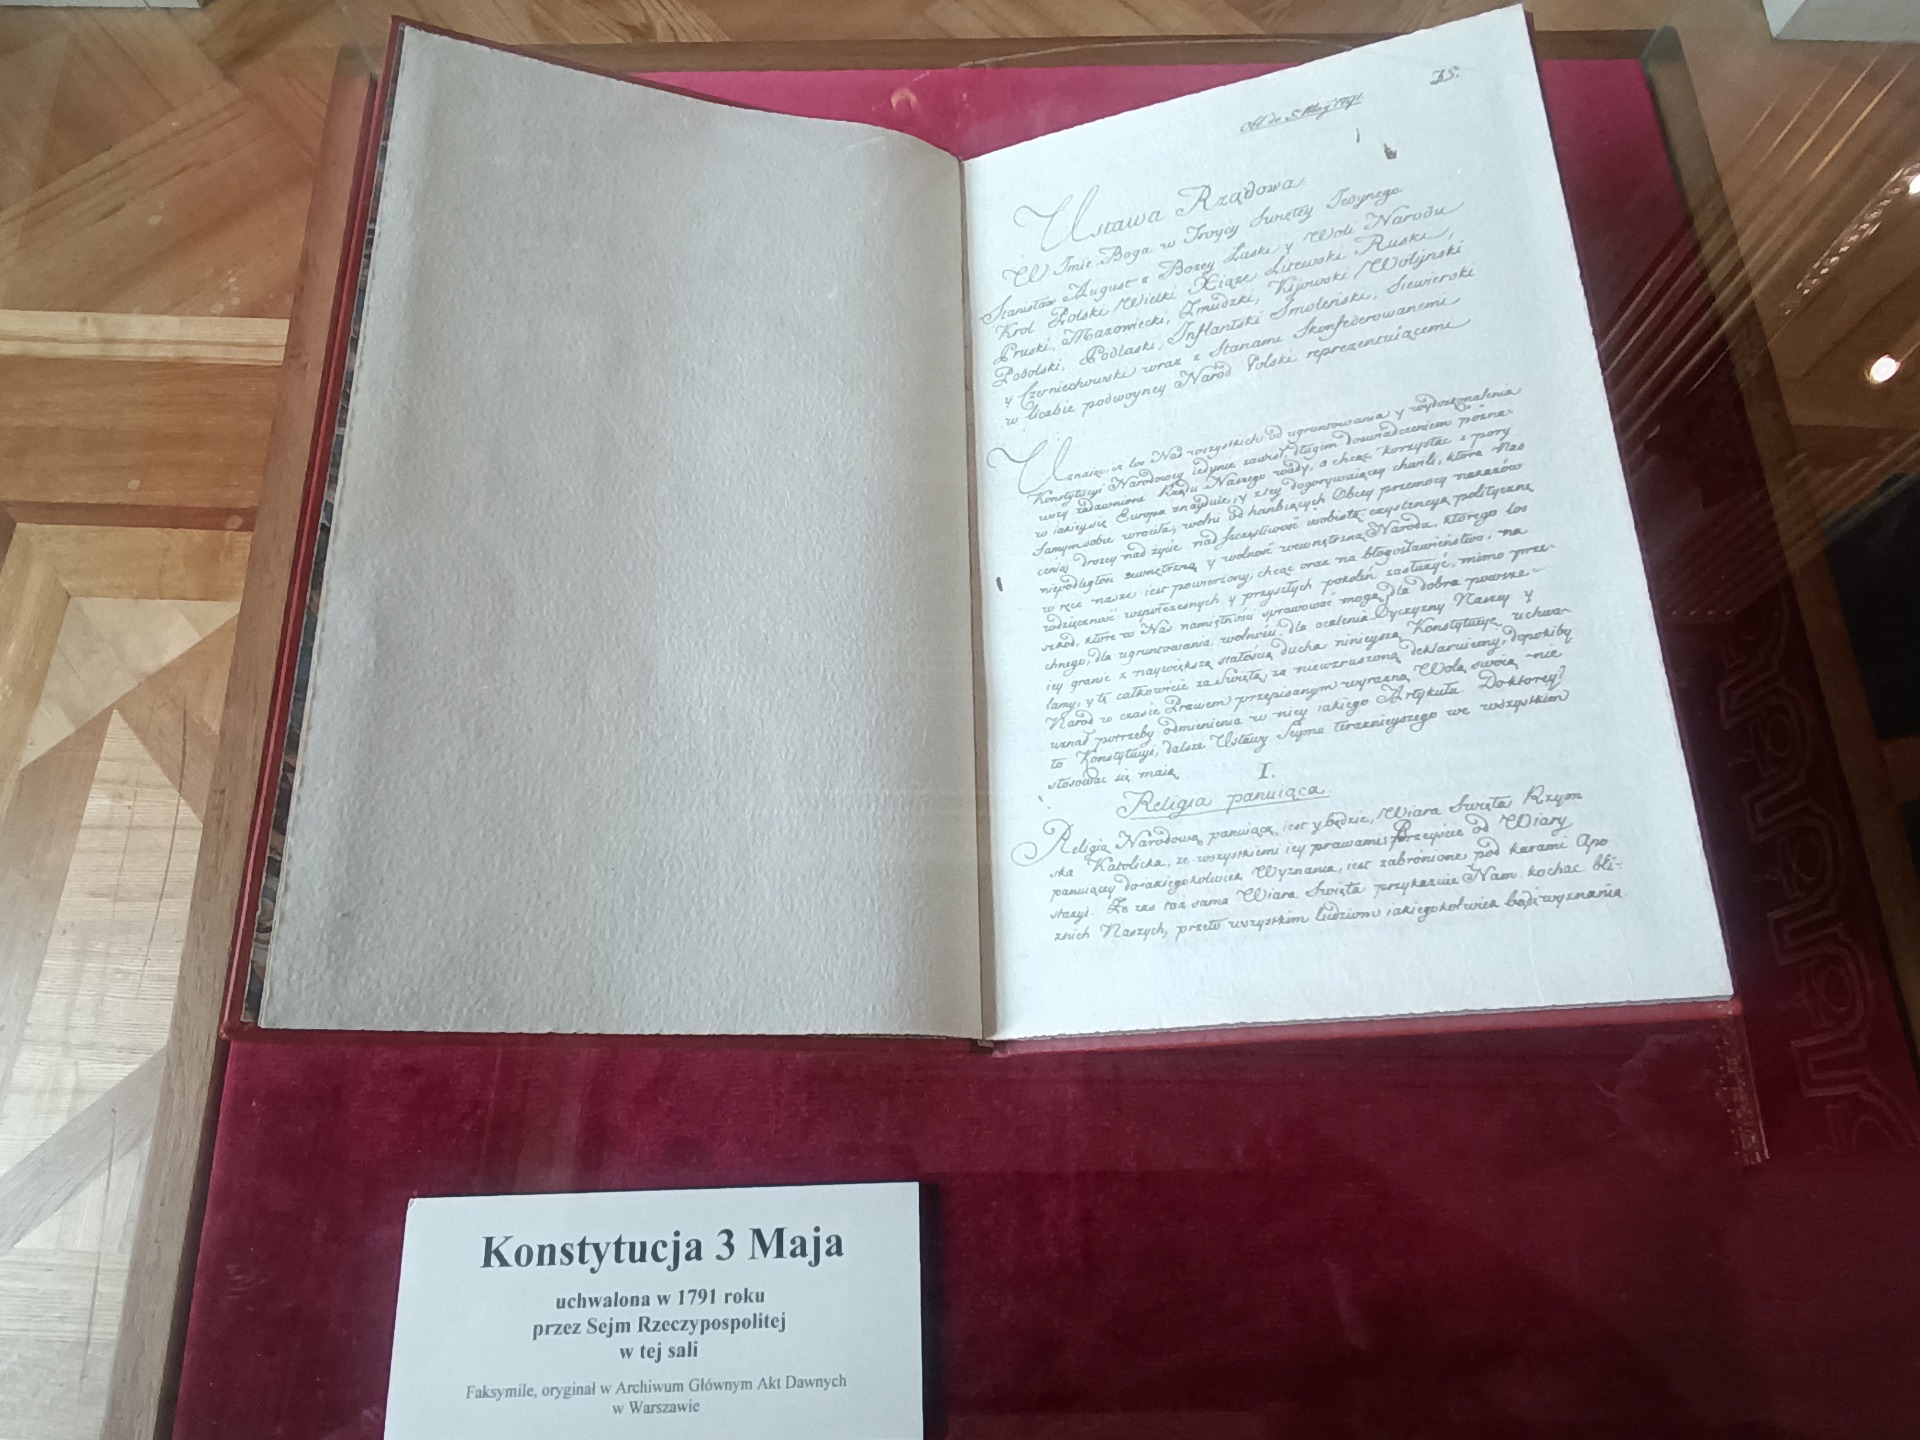 25.
Ustawa Rządowa
W Imie Boga w Troycy Swiętey Jedynego.
Stanisław August z Bozey Łaski y Woli Narodu
Krol Polski Wielki Xiąże Litewski, Ruski,
Pruski, Mazowiecki, Zmudzki, Kijowski, Wołyński
Podolski, Podlaski, Inflantski Smoleński, Siewierski
y Czerniechowski wraz z Stanami Skonfederowanemi
w liczbie podwoyney Narod Polski reprezentuiącemi
Uznaiąc, iż los Nas wszystkich od ugruntowania y wydoskonalenia
Konstytucyi Narodowey iedynie zawisł, długim doświadczeniem pozna-
wszy zadawnione Rządu Naszego wady, a chcąc korzystać z pory
w iakiey się Europa znayduie, y z tey dogorywaiącey chwili, która Nas
samym sobie wrociła, wolni od hanbiących Obcey przemocy nakazów
ceniąc drozey nad zycie, nad szczęśliwość osobistą exystencyą polityczną
niepodległość zewnętrzną y wolność wewnętrzną Narodu, ktorego los
w ręce nasze iest powierzony, chcąc oraz na błogosławieństwo, na
wdzięczność współczesnych y przyszłych pokoleń zasłużyć, mimo prze-
szkod, które w Nas namiętności sprawować mogą, dla dobra powsze-
chnego, dla ugruntowania wolności, dla ocalenia Oyczyzny Naszey y
iey granic z naywiększą stałością ducha ninieyszą Konstytucyę uchwa-
lamy, y tę całkowicie za świętą, za niewzruszoną deklaruiemy, dopokiby
Narod w czasie Prawem przepisanym wyrazną Wolą swoią nie
uznał potrzeby odmienienia w niey iakiego Artykułu. Do ktorey
to Konstytucyi, dalsze Ustawy Seymu teraznieyszego we wszystkim
stosować się maią
I.
Religia panuiąca
Religią Narodową panuiącą iest y będzie, Wiara Swięta Rzym
ska Katolicka, ze wszystkiemi iey prawami: Przeyscie od Wiary
panuiącey do iakiegokolwiek Wyznania, iest zabronione pod karami Apo
stazyi. Ze zas taż sama Wiara Swięta przykazuie Nam kochac bli-
znich Naszych, przeto wszystkim ludziom iakiegokolwiek bądź wyznania
Konstytucja 3 Maja
uchwalona w 1791 roku
przez Sejm Rzeczypospolitej
w tej sali
Faksymile, oryginał w Archiwum Głównym Akt Dawnych
w Warszawie